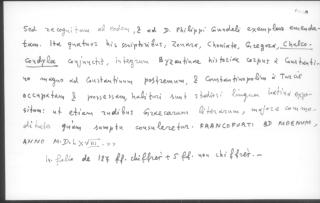 Sed recognitum ab eodem, & ad D. Philippi Gundeli exemplar emenda-
tum. Ita quatuor his scriptoribus, Zonara, Choniate, Gregora, Chalco-
condyla conjunctis, integrum Byzantinae historiae corpus à Constanti-
no magno ad Constantinum postremum, & Constantinopolim à Turcis
occupatam & possessam habituri sunt studiosi linguae latinae expo-
situm: ut etiam rudibus Graecarum literarum, majore commo-
ditate quam sumptu consuleretur. FRANCOFURTI AD MOENUM,
ANNO M.D.LXVIII. »
in folio de 187 ff. chiffrés + 5 ff. non chiffrés. —